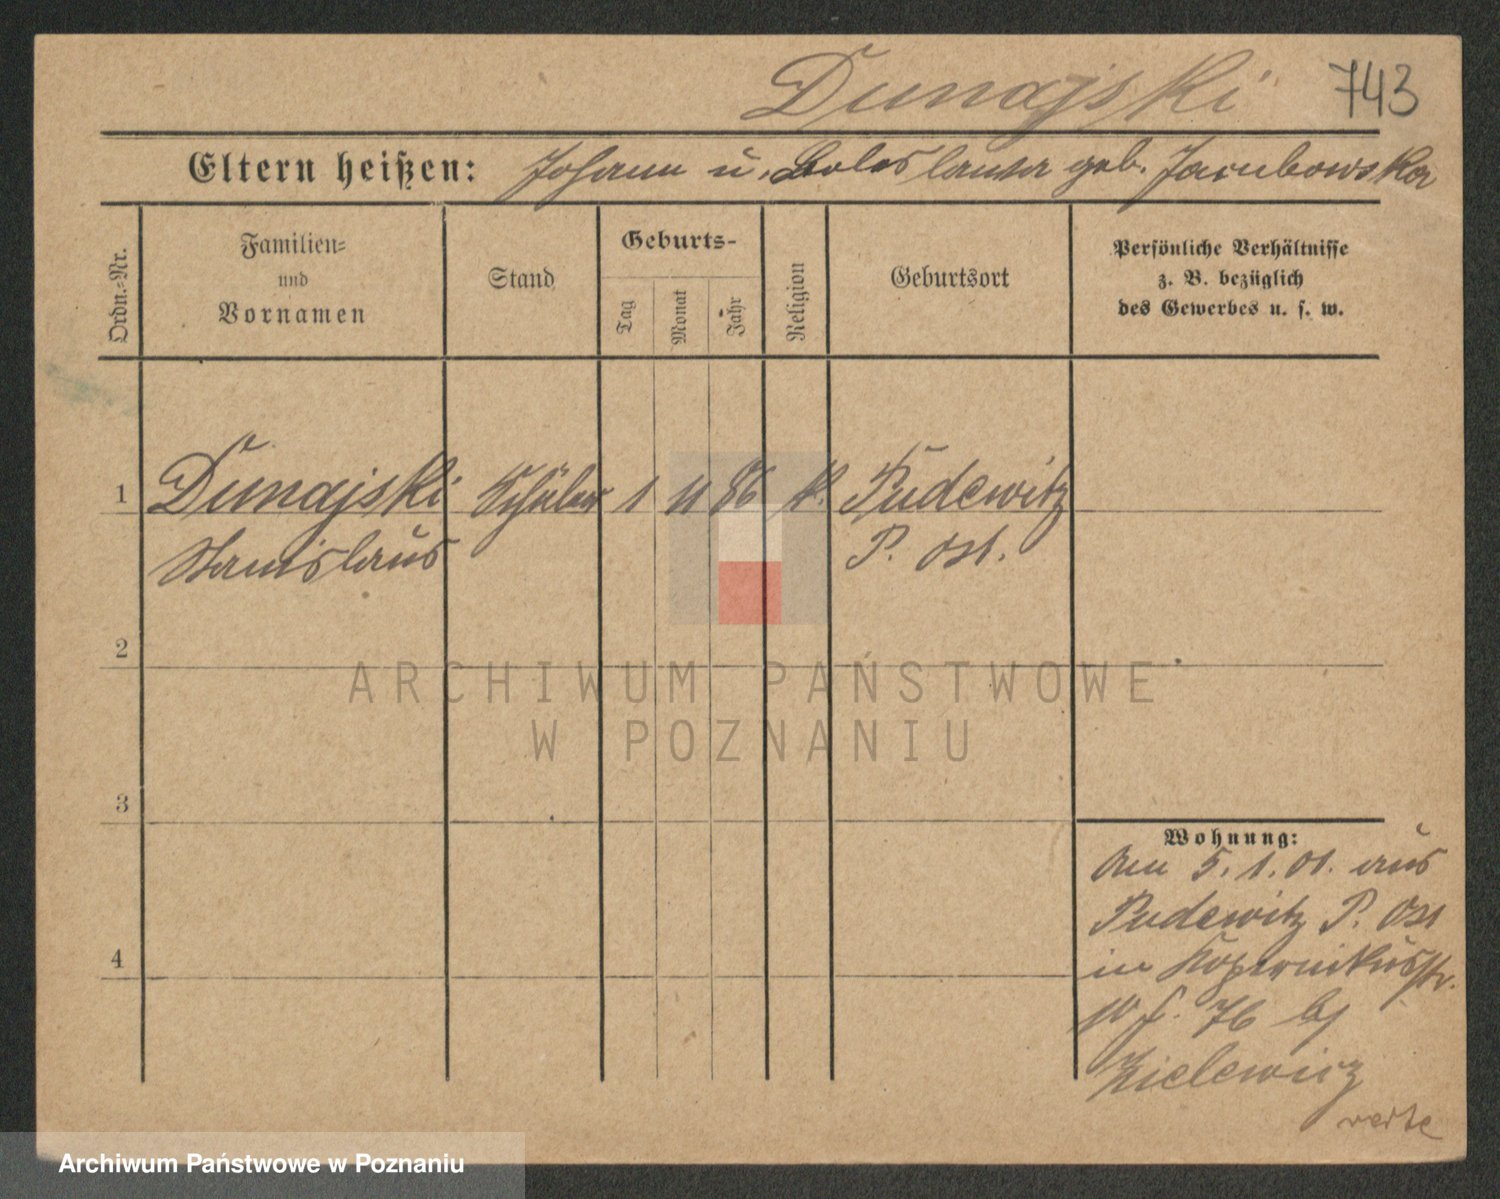 Dunajski 743
Eltern heißen: Johann u. Boleslawa geb. Jarubowska
Ordn.-Nr.
Familien-
und
Vornamen
Stand
Geburts-
Tag
Monat
Jahr
Religion
Geburtsort
Persönliche Verhältnisse
z. B. bezüglich
des Gewerbes u. s. w.
1 Dunajski Schüler 1 11 86 k. Pudewitz
Stanislaus P. Ost.
2
3
4
Wohnung:
Am 5.1.01. aus
Pudewitz P. Ost
in Kopernikusstr.
76 bj
Kielewicz
verte
ARCHIWUM PAŃSTWOWE
W POZNANIU
Archiwum Państwowe w Poznaniu